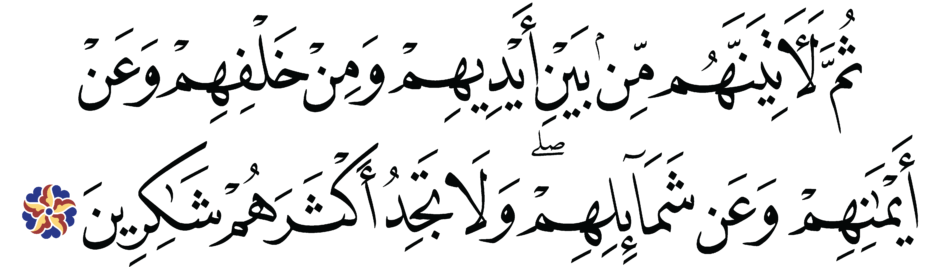 ثُمَّ لَأٓتِيَنَّهُم مِّنۢ بَيۡنِ أَيۡدِيهِمۡ وَمِنۡ خَلۡفِهِمۡ وَعَنۡ
أَيۡمَٰنِهِمۡ وَعَن شَمَآئِلِهِمۡۖ وَلَا تَجِدُ أَكۡثَرَهُمۡ شَٰكِرِينَ